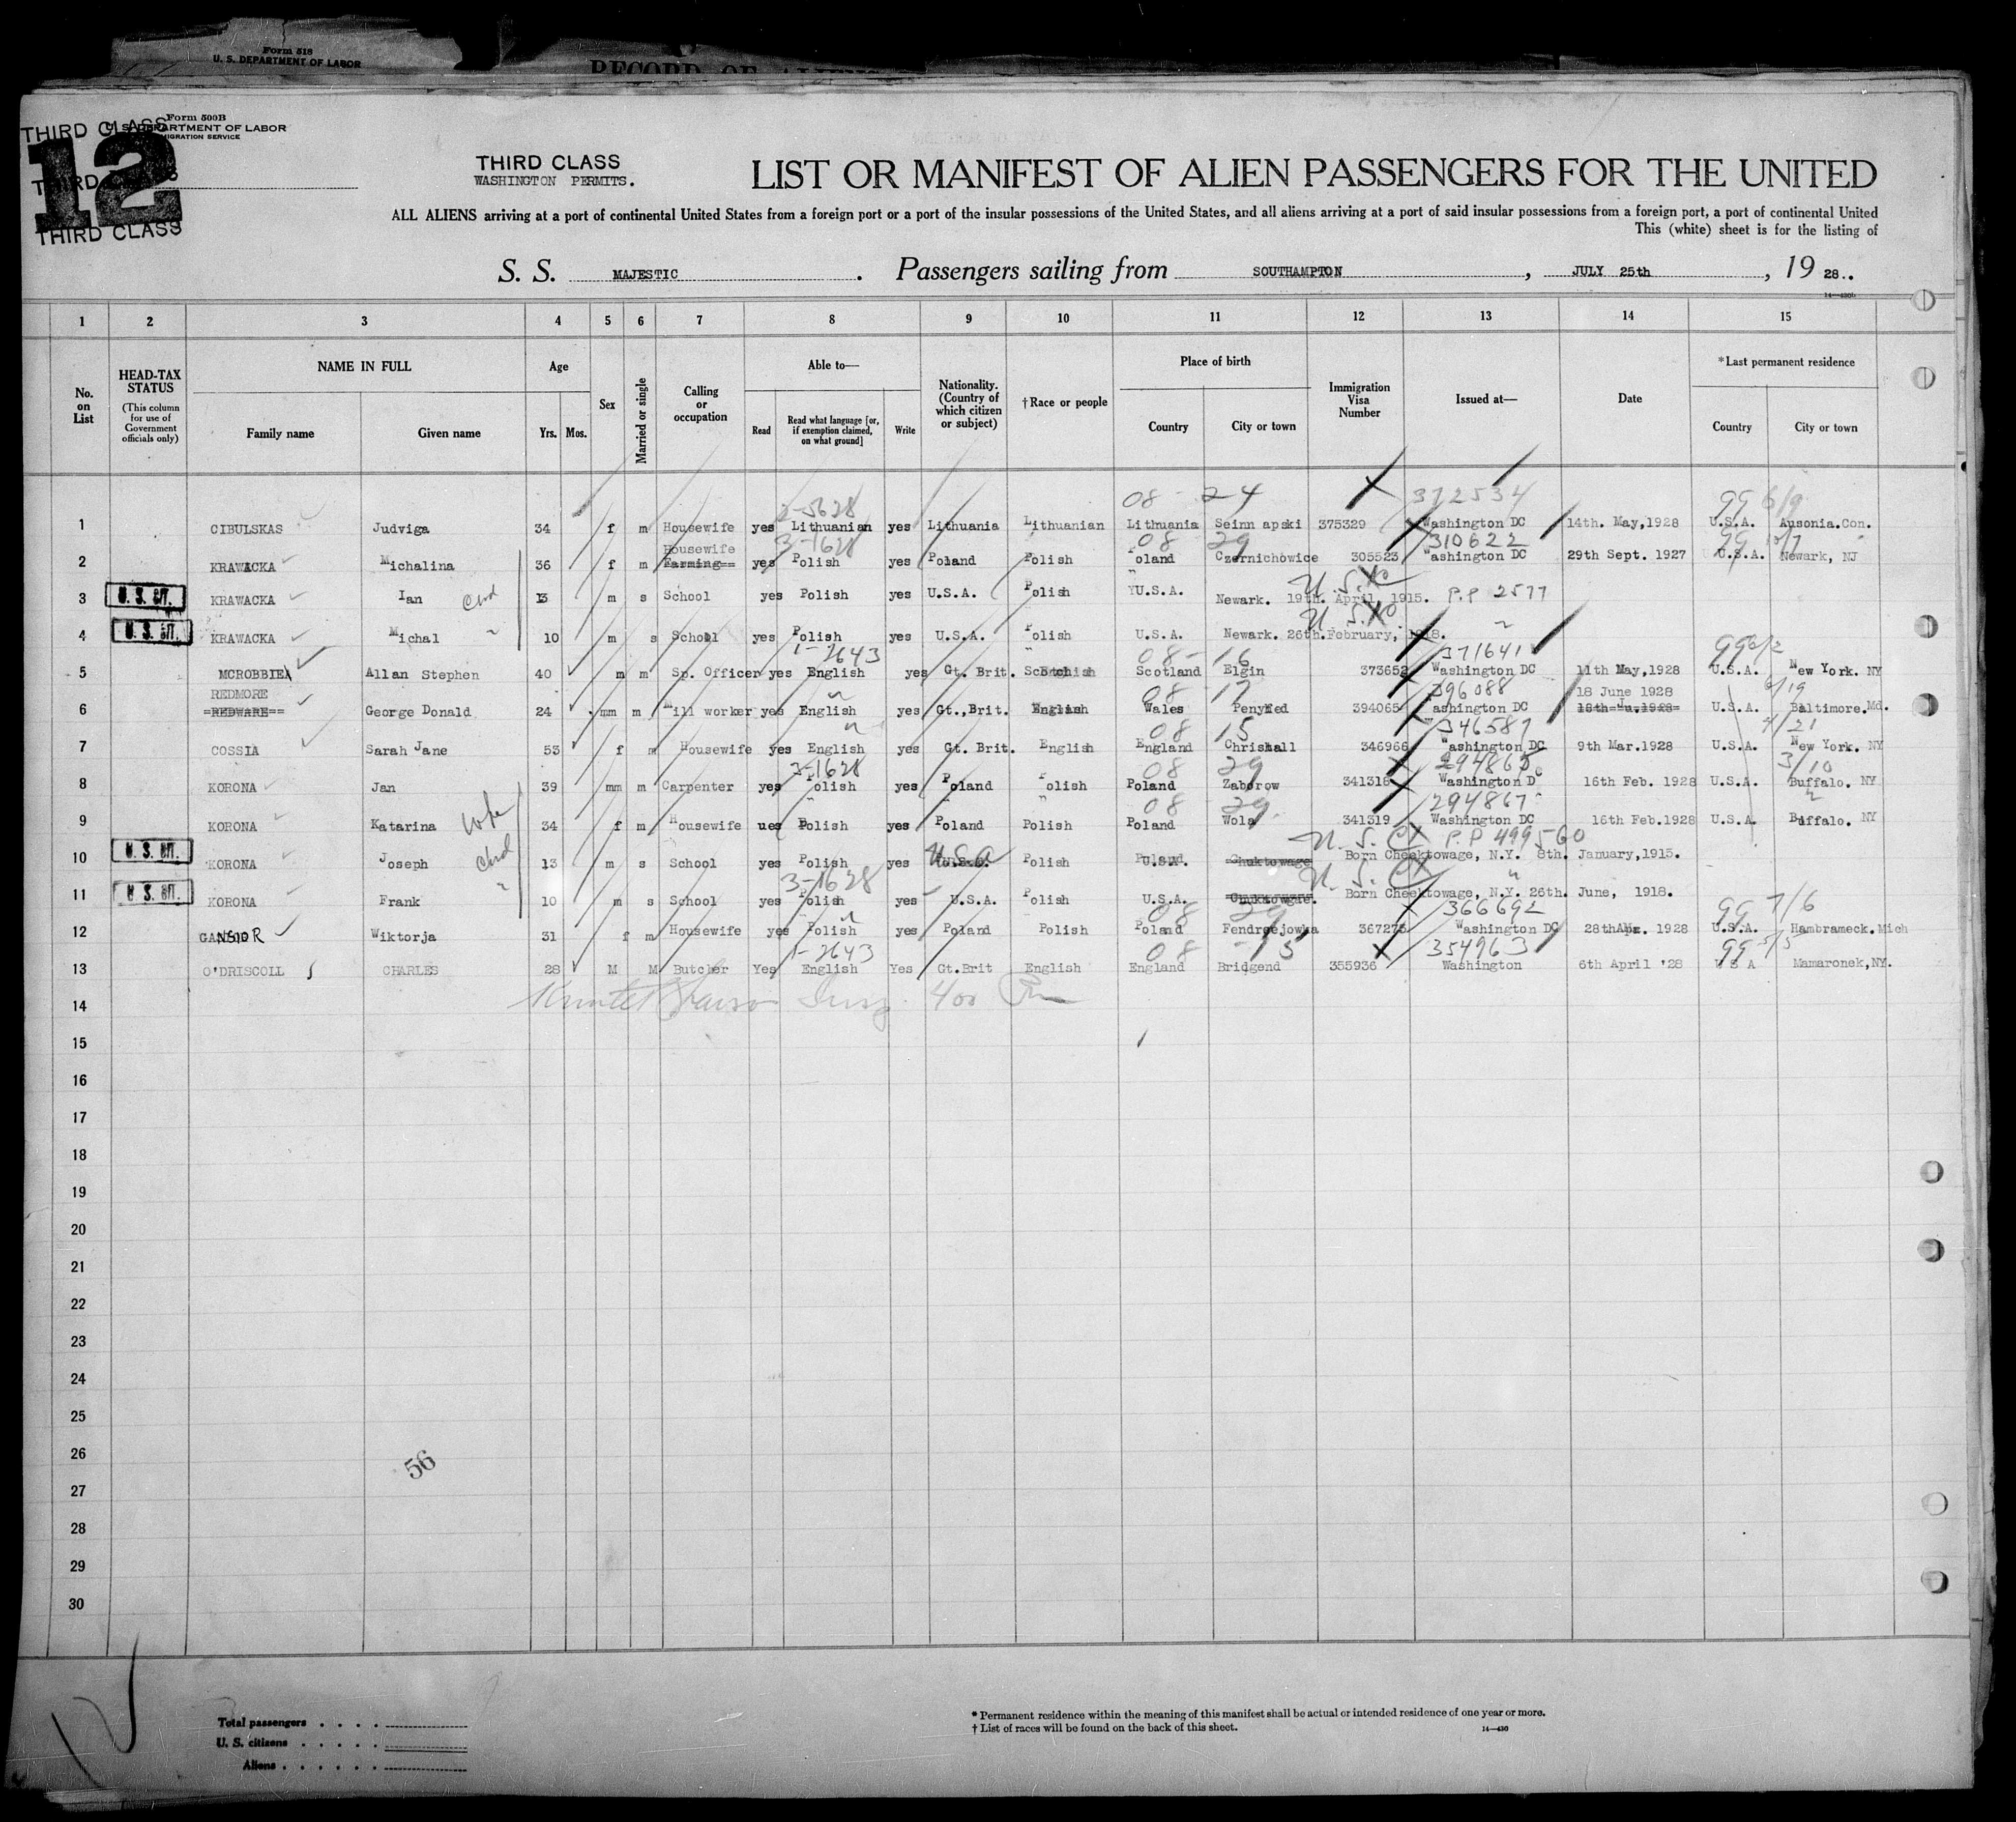 Form 518
U. S. DEPARTMENT OF LABOR
RECORD OF ALIENS
Form 500B
U. S. DEPARTMENT OF LABOR
IMMIGRATION SERVICE
THIRD CLASS
12
THIRD CLASS
THIRD CLASS
THIRD CLASS
WASHINGTON PERMITS.
LIST OR MANIFEST OF ALIEN PASSENGERS FOR THE UNITED
ALL ALIENS arriving at a port of continental United States from a foreign port or a port of the insular possessions of the United States, and all aliens arriving at a port of said insular possessions from a foreign port, a port of continental United
This (white) sheet is for the listing of
S. S. MAJESTIC. Passengers sailing from SOUTHAMPTON, JULY 25th, 19 28..
1 2 3 4 5 6 7 8 9 10 11 12 13 14 15
No. on List
HEAD-TAX STATUS
(This column for use of Government officials only)
NAME IN FULL
Family name Given name
Age
Yrs. Mos.
Sex
Married or single
Calling or occupation
Able to—
Read
Read what language [or, if exemption claimed, on what ground]
Write
Nationality. (Country of which citizen or subject)
†Race or people
Place of birth
Country City or town
Immigration Visa Number
Issued at—
Date
*Last permanent residence
Country City or town
08 24 372534 99 6/9
1 CIBULSKAS Judviga 34 f m Housewife yes Lithuanian yes Lithuania Lithuanian Lithuania Seinn apski 375329 Washington DC 14th. May,1928 U.S.A. Ausonia.Con.
Housewife 3-1628 08 29 310622 99 10/7
2 KRAWACKA Michalina 36 f m Farming yes Polish yes Poland Polish Poland Czernichowice 305523 Washington DC 29th Sept. 1927 U.S.A. Newark, NJ
3 U. S. CIT. KRAWACKA Ian Chd 13 m s School yes Polish yes U.S.A. Polish U.S.A. Newark. 19th. April, 1915. P.P 2577
4 U. S. CIT. KRAWACKA Michal 10 m s School yes Polish yes U.S.A. Polish U.S.A. Newark. 26th.February, 1918.
1-2643 08-16 371641 99 6/2
5 MCROBBIE Allan Stephen 40 m m Sp. Officer yes English yes Gt. Brit. Scotch Scotland Elgin 373652 Washington DC 11th May,1928 U.S.A. New York. NY
REDMORE 08 17 396088 18 June 1928 6/19
6 REDWARE George Donald 24 m m Mill worker yes English yes Gt.,Brit. English Wales 394065 Washington DC U.S.A. Baltimore.Md.
08 15 346587 4/21
7 COSSIA Sarah Jane 53 f m Housewife yes English yes Gt. Brit. English England Chrishall 346966 Washington DC 9th Mar.1928 U.S.A. New York. NY
3-1628 08 29 294865 3/10
8 KORONA Jan 39 m m Carpenter yes Polish yes Poland Polish Poland Zaborow 341318 Washington DC 16th Feb. 1928 U.S.A. Buffalo. NY
08 29 294867
9 KORONA Katarina Wife 34 f m Housewife ues Polish yes Poland Polish Poland Wola 341319 Washington DC 16th Feb.1928 U.S.A. Buffalo. NY
U. S. C P.P 499560
10 U. S. CIT. KORONA Joseph Chd 13 m s School yes Polish yes U.S.A. Polish U.S.A. Chuktowage Born Cheektowage, N.Y. 8th. January,1915.
3-1628 U. S. C
11 U. S. CIT. KORONA Frank 10 m s School yes Polish yes U.S.A. Polish U.S.A. Chuktowage. Born Cheektowage, N.Y. 26th. June, 1918.
08 29 366692 99 7/6
12 GANSIOR Wiktorja 31 f m Housewife yes Polish yes Poland Polish Poland Fendrzejowka 367275 Washington DC 28th Apr. 1928 U.S.A. Hambrameck.Mich
1-2643 08 15 354963 99 5/5
13 O'DRISCOLL CHARLES 28 M M Butcher Yes English Yes Gt.Brit English England Bridgend 355936 Washington 6th April '28 U S A Mamaronek,NY.
14
15
16
17
18
19
20
21
22
23
24
25
26
56
27
28
29
30
Total passengers
U. S. citizens
Aliens
* Permanent residence within the meaning of this manifest shall be actual or intended residence of one year or more.
† List of races will be found on the back of this sheet.
14—430